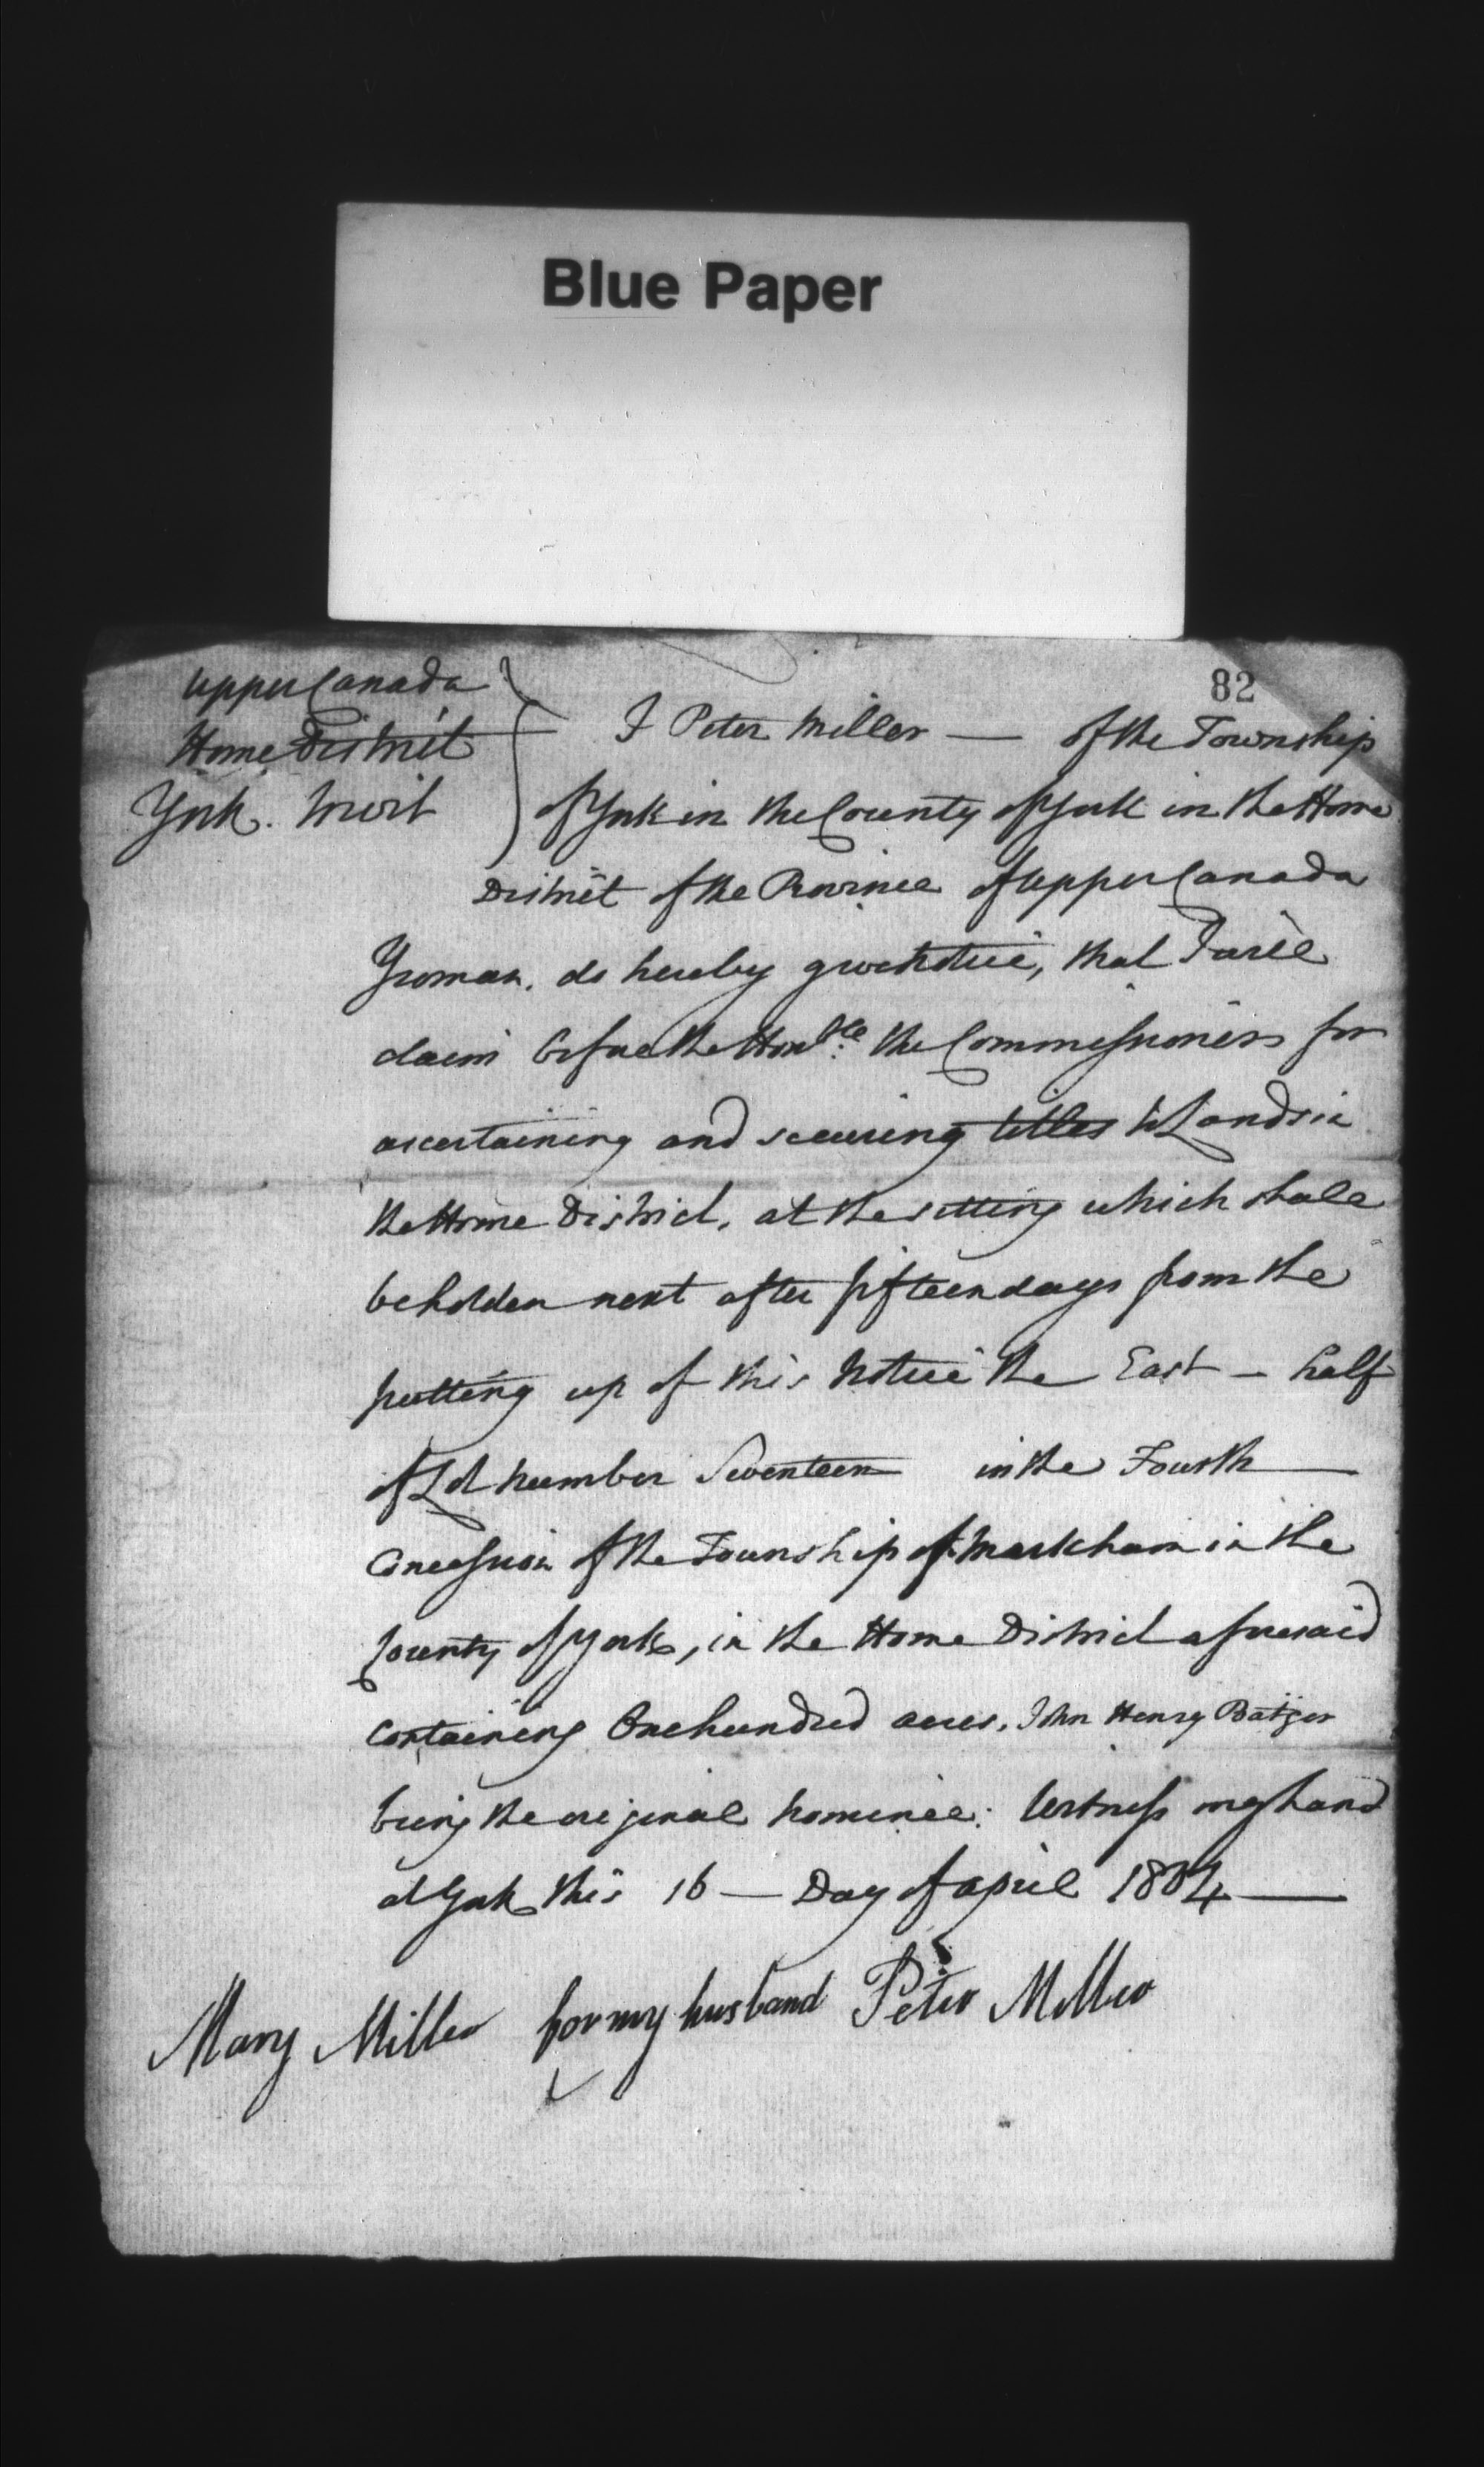 Blue Paper
82
Upper Canada
Home District
York. to wit
I Peter Miller — of the Township
of York in the County of York in the Home
District of the Province of Upper Canada
Yeoman. do hereby give notice, that I will
claim before the Honble. the Commissioners for
ascertaining and securing titles to Lands in
the Home District, at the sitting which shall
be holden next after fifteen days from the
putting up of this Notice the East - half
of Lot number Seventeen in the Fourth —
Concession of the Township of Markham in the
County of York, in the Home District aforesaid
containing One hundred acres. John Henry Batzer
being the original nominee: Witness my hand
at York this 16 — Day of April 1804 —
Mary Miller for my husband Peter Miller